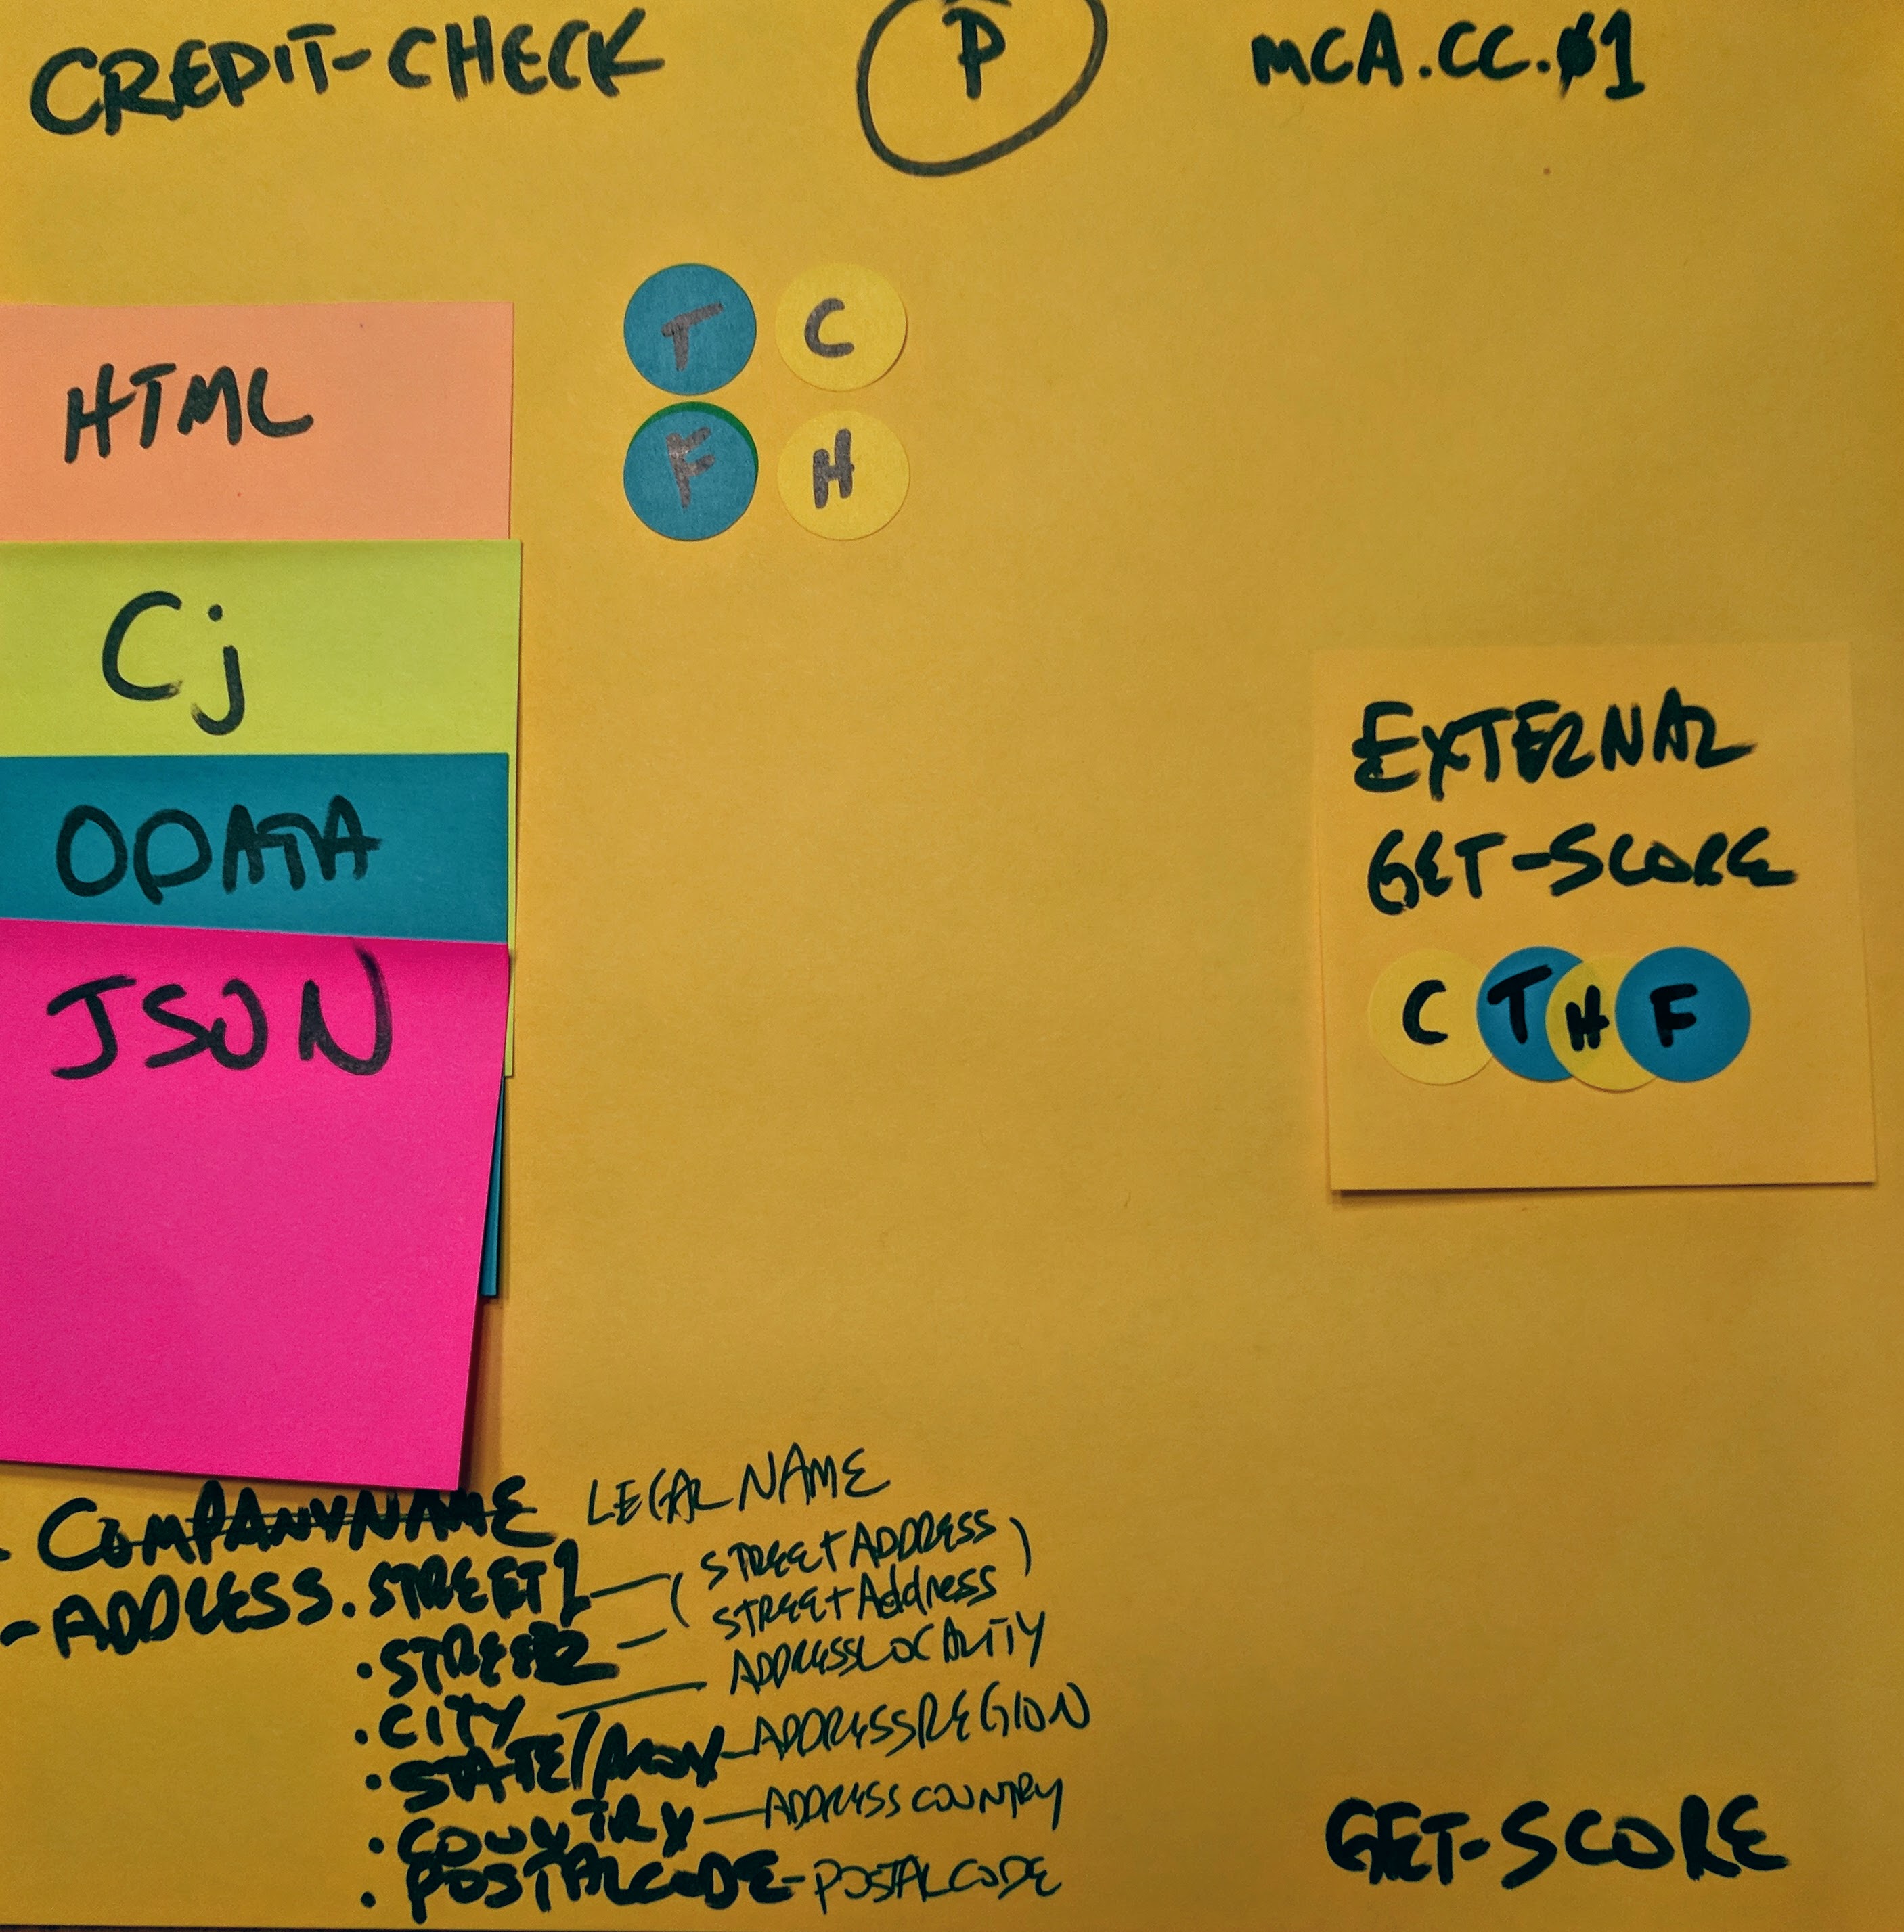 CREDIT-CHECK
P
MCA.CC.01
T C
F H
HTML
Cj
ODATA
JSON
EXTERNAL
GET-SCORE
C T H F
- COMPANYNAME LEGALNAME
- ADDRESS.STREET1 — (STREETADDRESS)
.STREET2 — STREETAddress
.CITY — ADDRESSLOCALITY
.STATE/PROV - ADDRESSREGION
.COUNTRY — ADDRESSCOUNTRY
.POSTALCODE - POSTALCODE
GET-SCORE